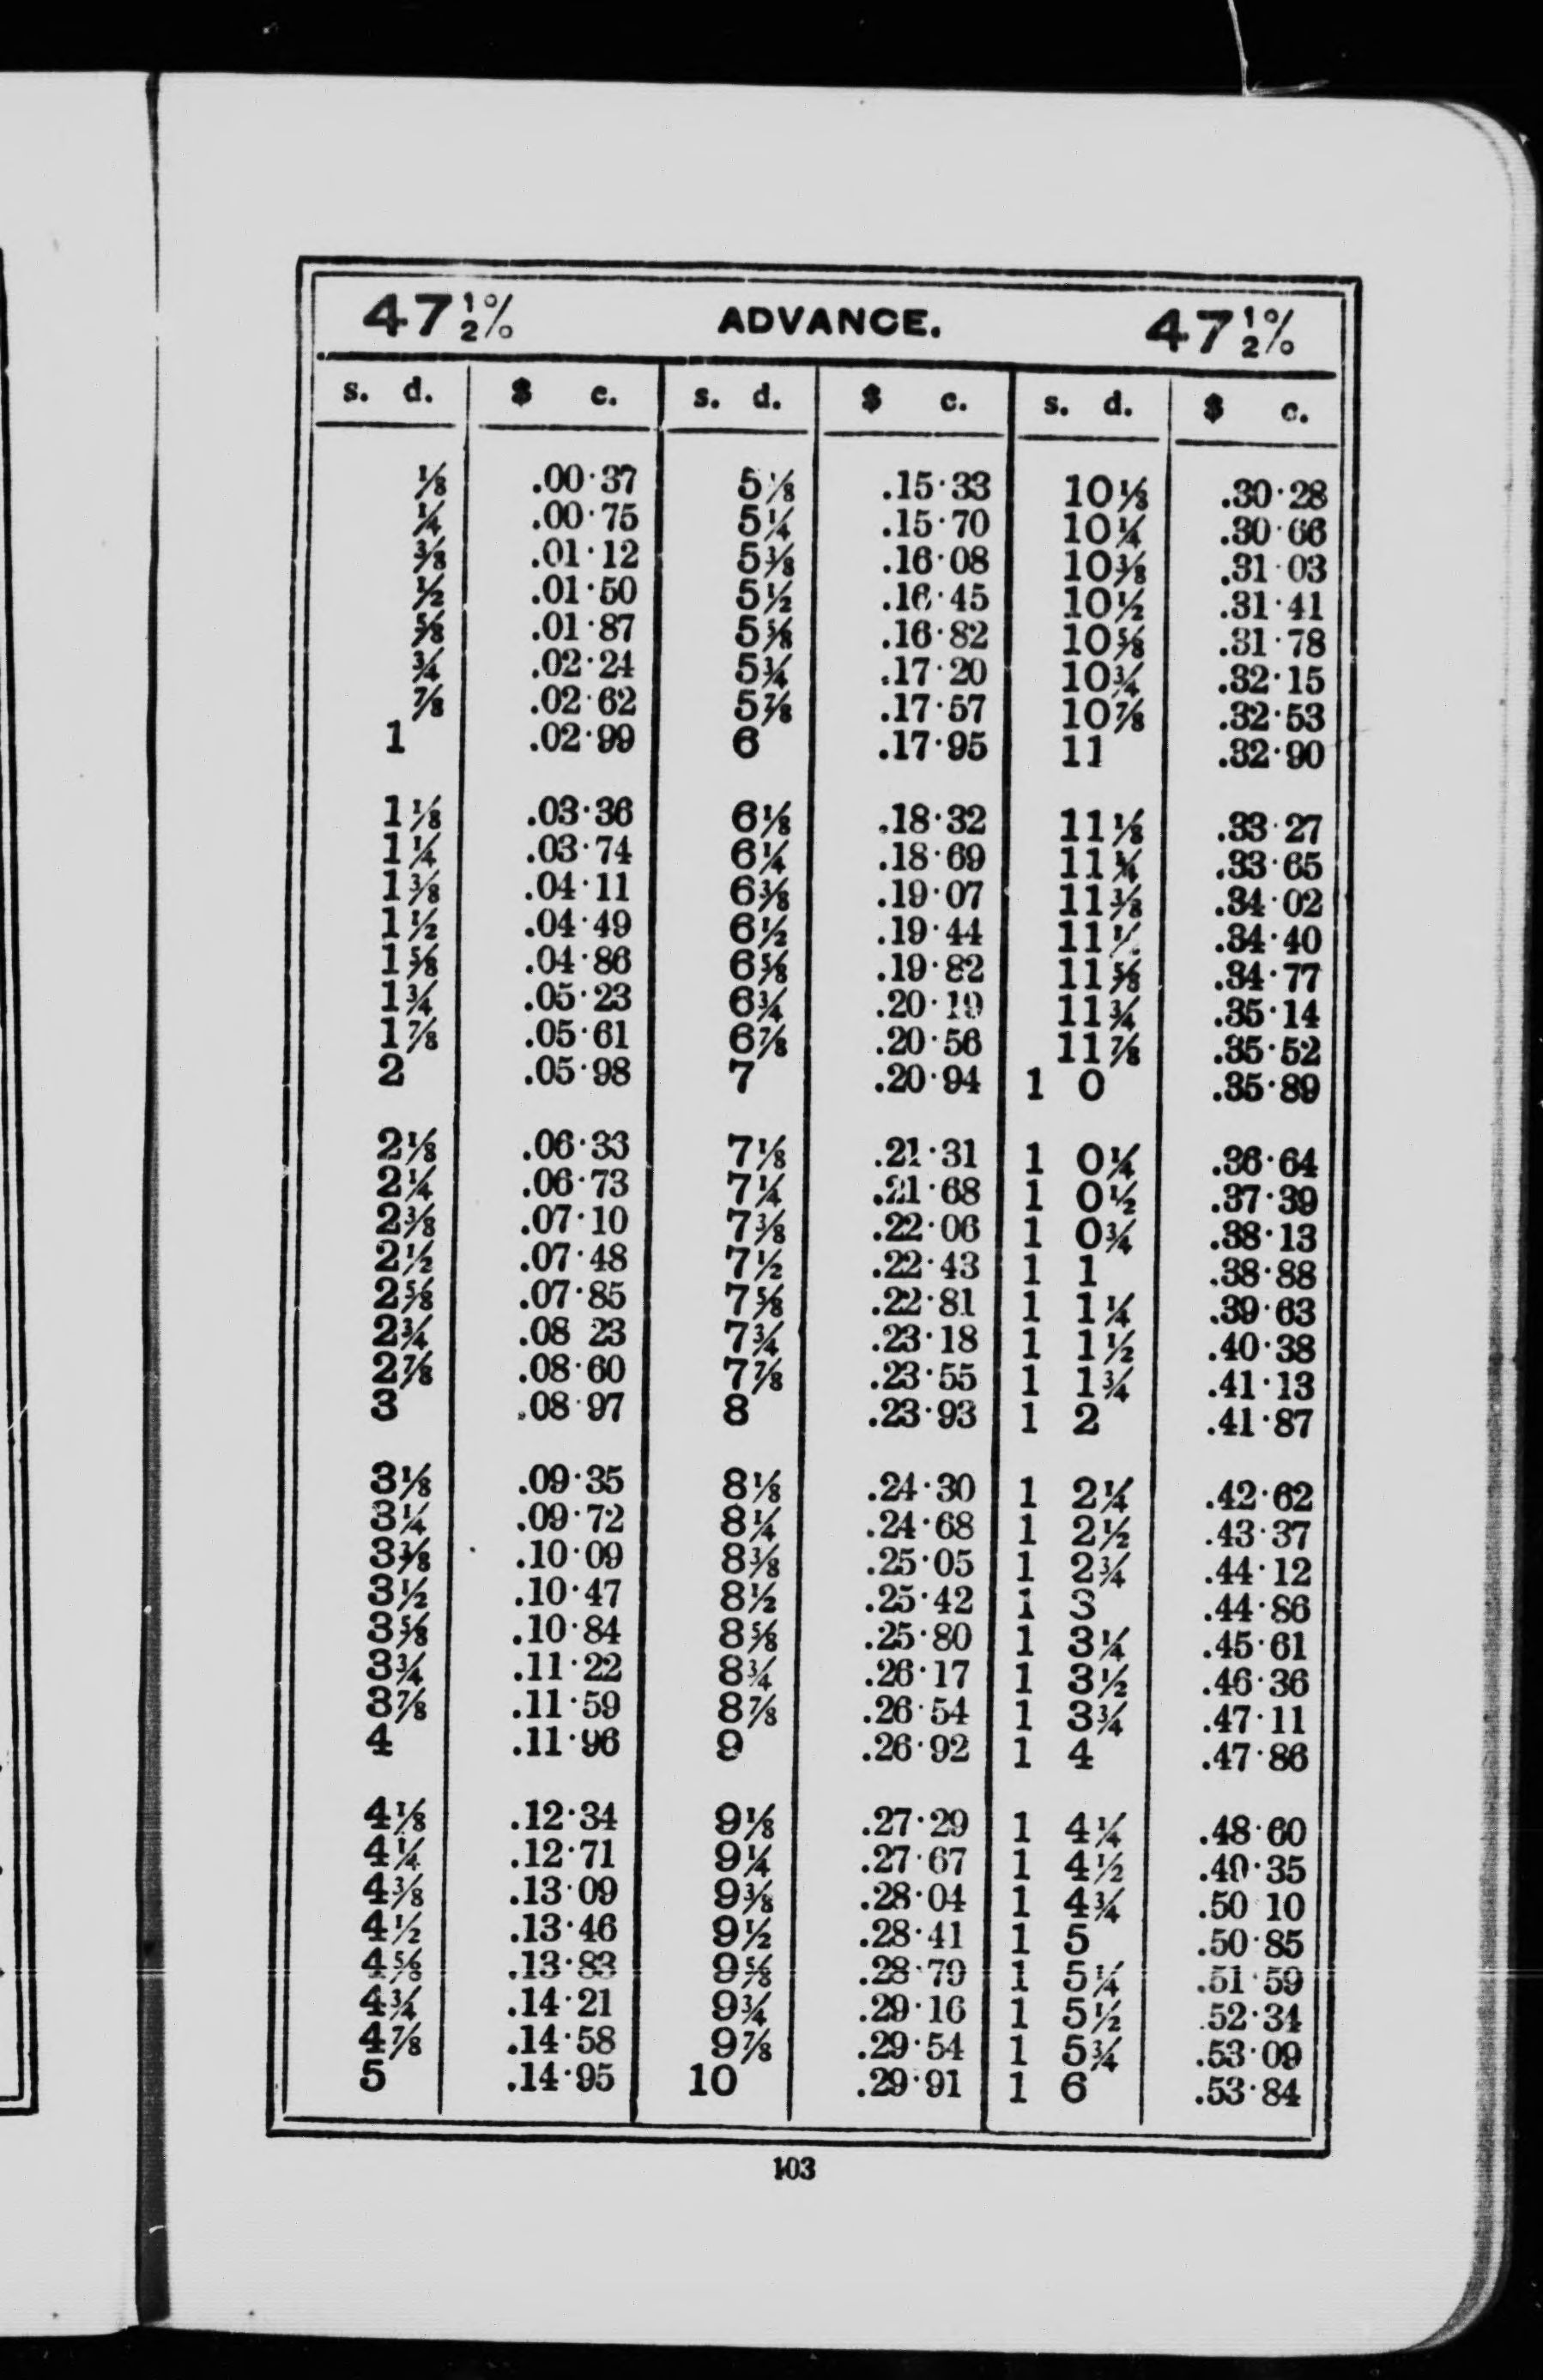 47½% ADVANCE. 47½%
s. d. $ c. s. d. $ c. s. d. $ c.
⅛ .00·37 5⅛ .15·33 10⅛ .30·28
¼ .00·75 5¼ .15·70 10¼ .30·66
⅜ .01·12 5⅜ .16·08 10⅜ .31·03
½ .01·50 5½ .16·45 10½ .31·41
⅝ .01·87 5⅝ .16·82 10⅝ .31·78
¾ .02·24 5¾ .17·20 10¾ .32·15
⅞ .02·62 5⅞ .17·57 10⅞ .32·53
1 .02·99 6 .17·95 11 .32·90
1⅛ .03·36 6⅛ .18·32 11⅛ .33·27
1¼ .03·74 6¼ .18·69 11¼ .33·65
1⅜ .04·11 6⅜ .19·07 11⅜ .34·02
1½ .04·49 6½ .19·44 11½ .34·40
1⅝ .04·86 6⅝ .19·82 11⅝ .34·77
1¾ .05·23 6¾ .20·19 11¾ .35·14
1⅞ .05·61 6⅞ .20·56 11⅞ .35·52
2 .05·98 7 .20·94 1 0 .35·89
2⅛ .06·33 7⅛ .21·31 1 0¼ .36·64
2¼ .06·73 7¼ .21·68 1 0½ .37·39
2⅜ .07·10 7⅜ .22·06 1 0¾ .38·13
2½ .07·48 7½ .22·43 1 1 .38·88
2⅝ .07·85 7⅝ .22·81 1 1¼ .39·63
2¾ .08 23 7¾ .23·18 1 1½ .40·38
2⅞ .08·60 7⅞ .23·55 1 1¾ .41·13
3 .08·97 8 .23·93 1 2 .41·87
3⅛ .09·35 8⅛ .24·30 1 2¼ .42·62
3¼ .09·72 8¼ .24·68 1 2½ .43·37
3⅜ .10·09 8⅜ .25·05 1 2¾ .44·12
3½ .10·47 8½ .25·42 1 3 .44·86
3⅝ .10·84 8⅝ .25·80 1 3¼ .45·61
3¾ .11·22 8¾ .26·17 1 3½ .46·36
3⅞ .11·59 8⅞ .26·54 1 3¾ .47·11
4 .11·96 9 .26·92 1 4 .47·86
4⅛ .12·34 9⅛ .27·29 1 4¼ .48·60
4¼ .12·71 9¼ .27·67 1 4½ .49·35
4⅜ .13·09 9⅜ .28·04 1 4¾ .50 10
4½ .13·46 9½ .28·41 1 5 .50·85
4⅝ .13·83 9⅝ .28·79 1 5¼ .51·59
4¾ .14·21 9¾ .29·16 1 5½ .52·34
4⅞ .14·58 9⅞ .29·54 1 5¾ .53·09
5 .14·95 10 .29·91 1 6 .53·84
103